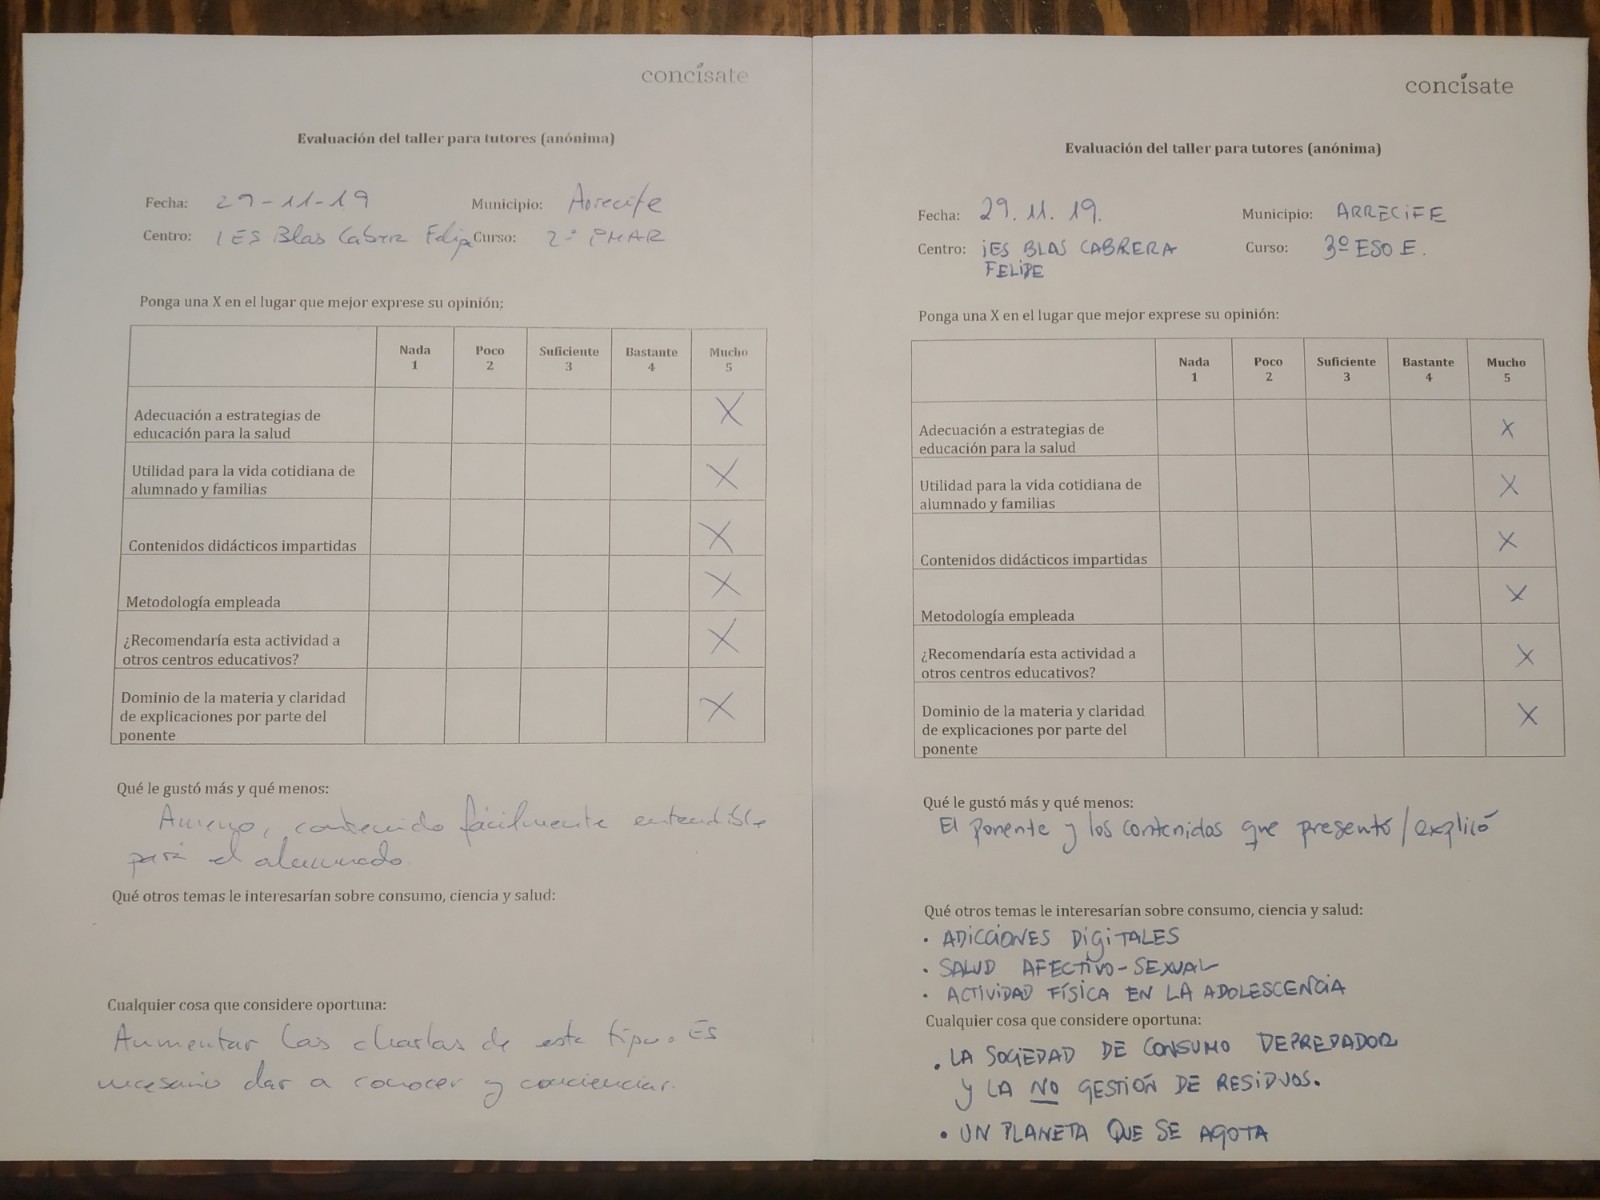 concisate
Evaluación del taller para tutores (anónima)
Fecha: 29-11-19 Municipio: Arrecife
Centro: IES Blas Cabrera Felipe Curso: 2º PMAR
Ponga una X en el lugar que mejor exprese su opinión;
Nada Poco Suficiente Bastante Mucho
1 2 3 4 5
Adecuación a estrategias de X
educación para la salud
Utilidad para la vida cotidiana de X
alumnado y familias
Contenidos didácticos impartidas X
Metodología empleada X
¿Recomendaría esta actividad a X
otros centros educativos?
Dominio de la materia y claridad
de explicaciones por parte del X
ponente
Qué le gustó más y qué menos:
Ameno, contenido fácilmente entendible
para el alumnado
Qué otros temas le interesarían sobre consumo, ciencia y salud:
Cualquier cosa que considere oportuna:
Aumentar las charlas de este tipo. Es
necesario dar a conocer y concienciar.
concisate
Evaluación del taller para tutores (anónima)
Fecha: 29. 11. 19. Municipio: ARRECIFE
Centro: IES BLAS CABRERA Curso: 3º ESO E.
FELIPE
Ponga una X en el lugar que mejor exprese su opinión:
Nada Poco Suficiente Bastante Mucho
1 2 3 4 5
Adecuación a estrategias de X
educación para la salud
Utilidad para la vida cotidiana de X
alumnado y familias
Contenidos didácticos impartidas X
Metodología empleada X
¿Recomendaría esta actividad a X
otros centros educativos?
Dominio de la materia y claridad X
de explicaciones por parte del
ponente
Qué le gustó más y qué menos:
El ponente y los contenidos que presentó/explicó
Qué otros temas le interesarían sobre consumo, ciencia y salud:
• ADICCIONES DIGITALES
• SALUD AFECTIVO-SEXUAL
• ACTIVIDAD FÍSICA EN LA ADOLESCENCIA
Cualquier cosa que considere oportuna:
• LA SOCIEDAD DE CONSUMO DEPREDADOR
Y LA NO GESTIÓN DE RESIDUOS.
• UN PLANETA QUE SE AGOTA